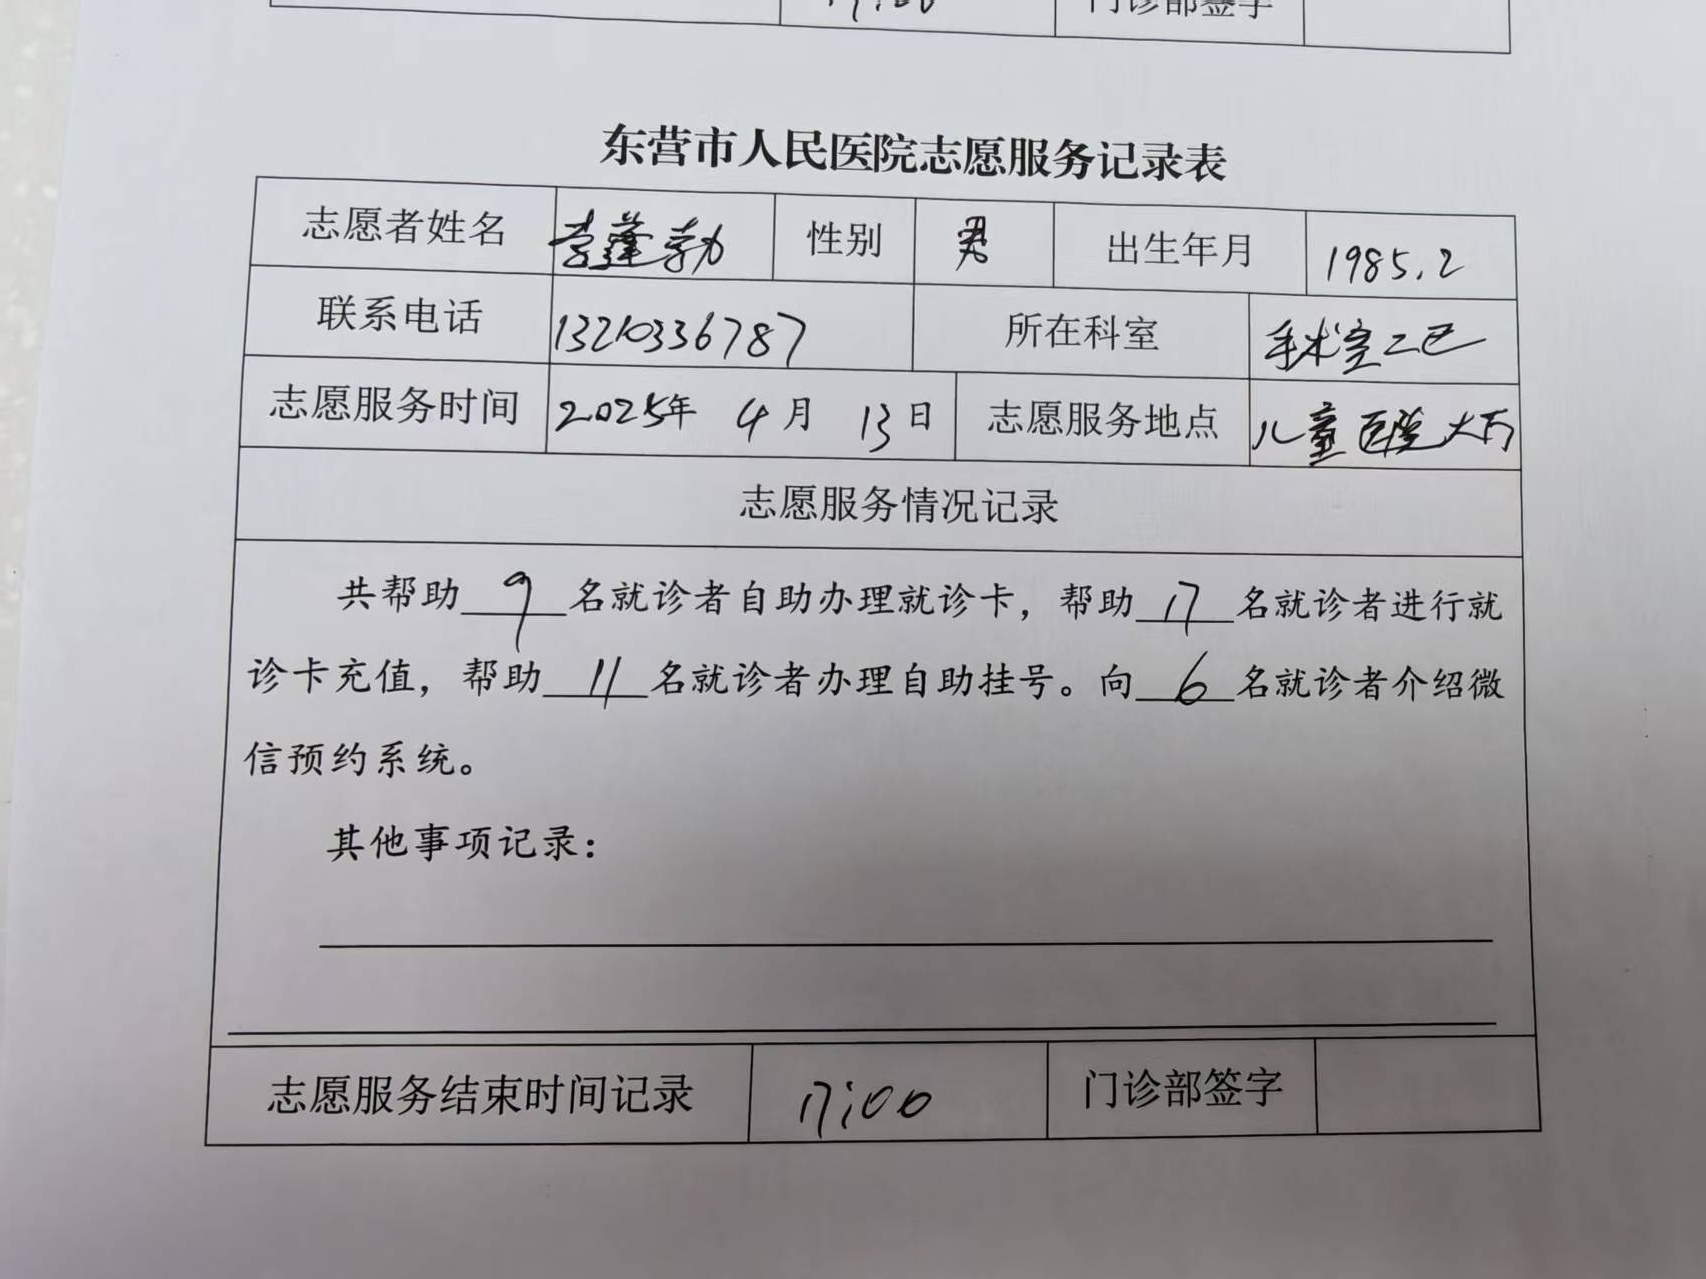 17:00 门诊部签字
东营市人民医院志愿服务记录表
志愿者姓名 李蓬勃 性别 男 出生年月 1985.2
联系电话 13210336787 所在科室 手术室二区
志愿服务时间 2025年 4月 13日 志愿服务地点 儿童医院大厅
志愿服务情况记录
共帮助 9 名就诊者自助办理就诊卡，帮助 17 名就诊者进行就
诊卡充值，帮助 11 名就诊者办理自助挂号。向 6 名就诊者介绍微
信预约系统。
其他事项记录：
志愿服务结束时间记录 17:00 门诊部签字